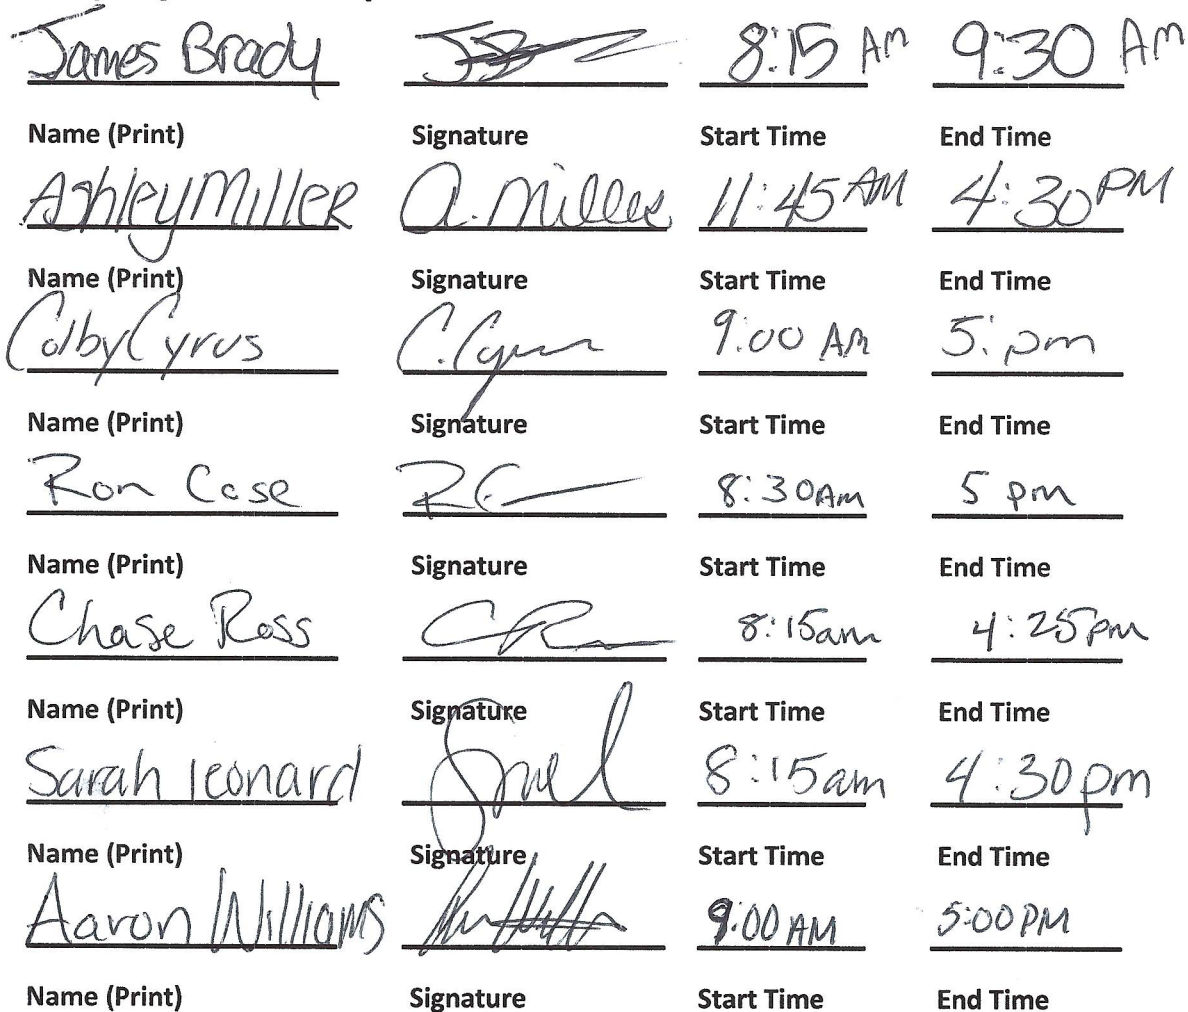 James Brady JB 8:15 AM 9:30 AM
Name (Print) Signature Start Time End Time
Ashley Miller A. Miller 11:45 AM 4:30 PM
Name (Print) Signature Start Time End Time
Colby Cyrus C. Cyrus 9:00 AM 5: pm
Name (Print) Signature Start Time End Time
Ron Case RC 8:30 AM 5 pm
Name (Print) Signature Start Time End Time
Chase Ross CR 8:15am 4:25pm
Name (Print) Signature Start Time End Time
Sarah leonard 8:15am 4:30pm
Name (Print) Signature Start Time End Time
Aaron Williams 9:00 AM 5:00 PM
Name (Print) Signature Start Time End Time